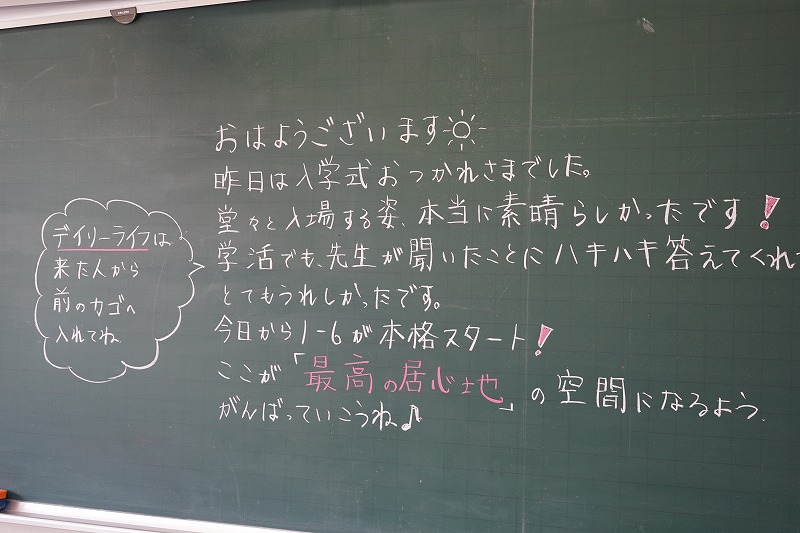 おはようございます
昨日は入学式おつかれさまでした。
堂々と入場する姿、本当に素晴らしかったです!
学活でも、先生が聞いたことにハキハキ答えてくれて
とてもうれしかったです。
今日から1-6が本格スタート!
ここが「最高の居心地」の空間になるよう
がんばっていこうね♪
デイリーライフは
来た人から
前のカゴへ
入れてね